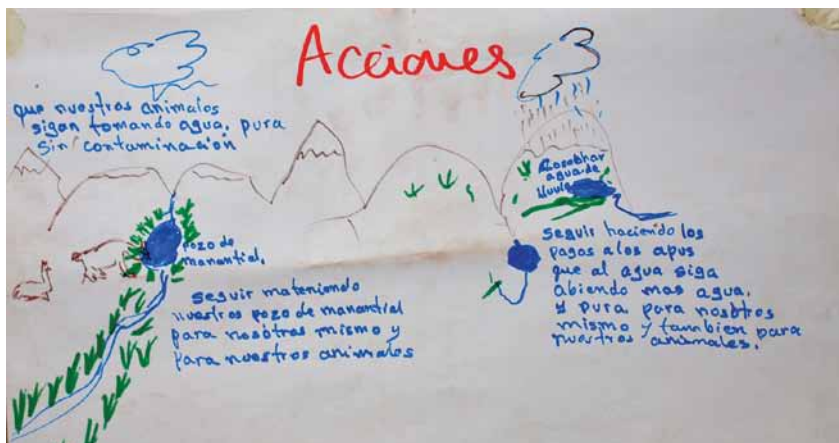 Acciones
que nuestros animales
sigan tomando agua, pura
sin contaminación
pozo de
manantial.
seguir mateniendo
nuestros pozo de manantial
para nosotros mismo y
para nuestros animales
Cosechar
agua de
lluvia
seguir haciendo los
pagos a los apus
que al agua siga
abiendo mas agua,
y pura para nosotros
mismo y tambien para
nuestros animales.